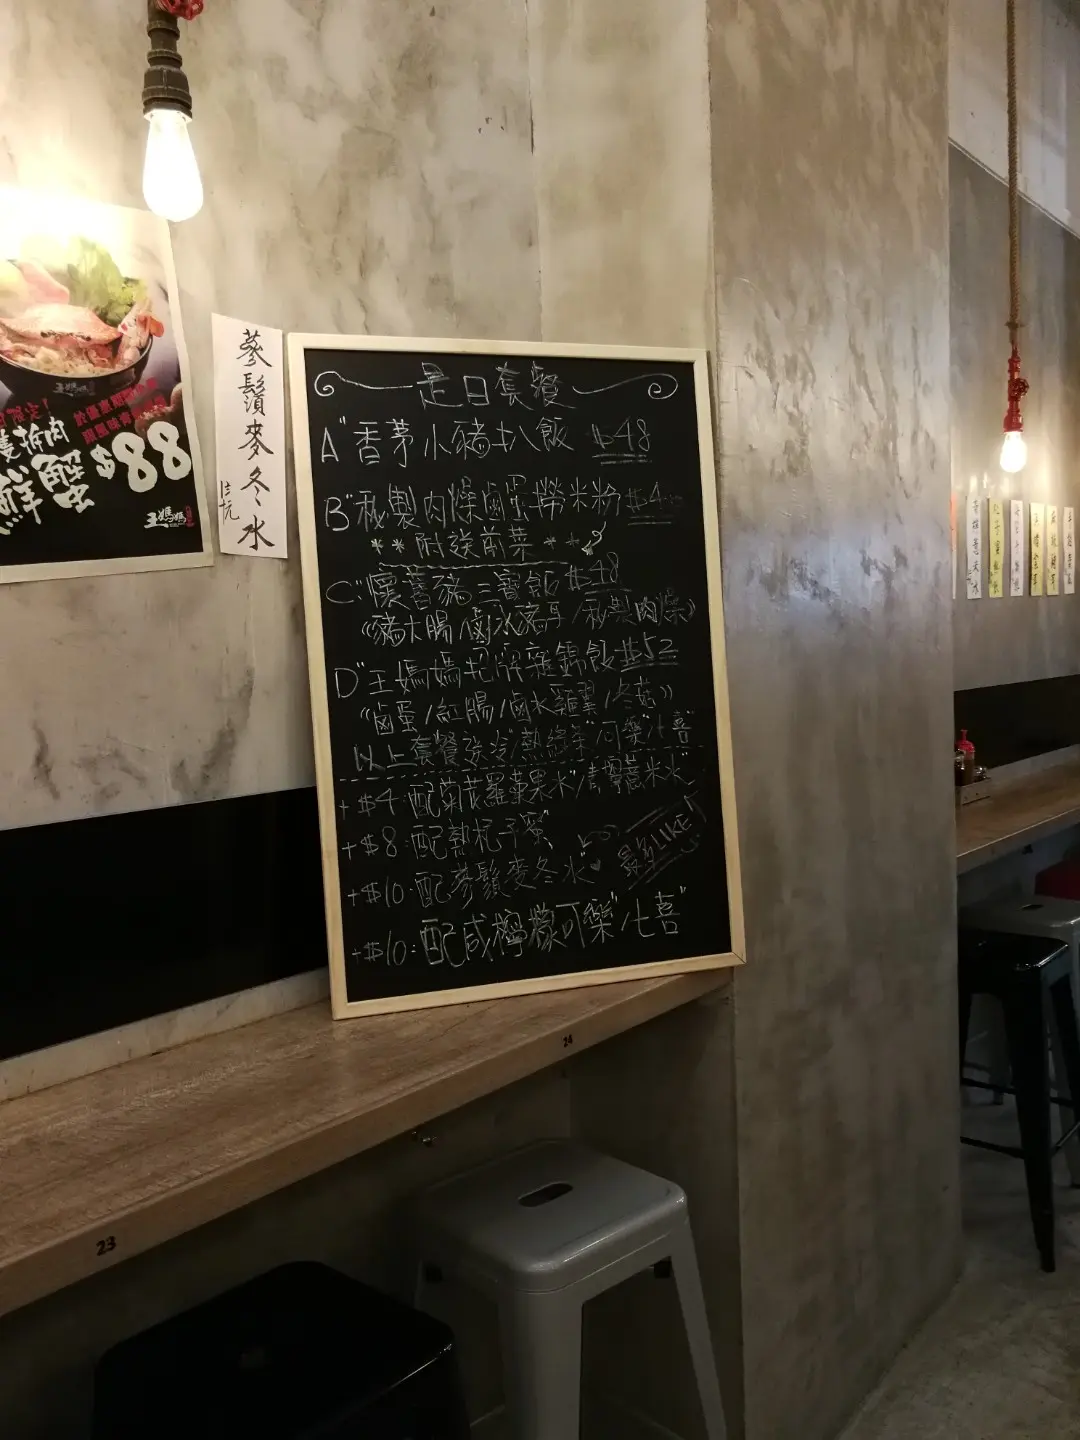 是日套餐
A" 香茅小豬扒飯 $48
B" 秘製肉燥鹵蛋撈米粉 $4
**附送前菜**
C" 懷舊豬三寶飯 $48
《豬大腸/鹵水豬耳/秘製肉燥》
D" 王媽媽招牌雜錦飯 $52
《鹵蛋/紅腸/鹵水雞翼/冬菇》
以上套餐送冷/熱綠茶"可樂"七喜"
+$4:配菊花羅漢果水"/青檸薏米水"
+$8:配熱杞子蜜"
+$10:配蔘鬚麥冬水"♥
最多LIKE!
+$10:配咸檸檬可樂"/七喜"
蔘鬚麥冬水
隻拆肉
鮮蟹 $88
王媽媽
23
24